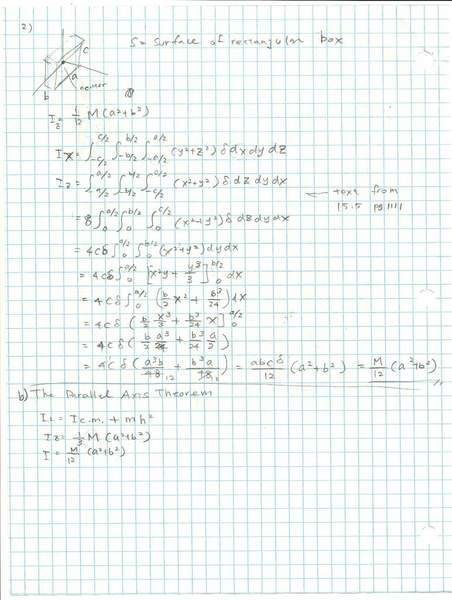 2)
S = Surface of rectangular box
c
a
b
center
I_z = 1/12 M(a²+b²)
I_x = ∫_{-c/2}^{c/2} ∫_{-b/2}^{b/2} ∫_{-a/2}^{a/2} (y²+z²) δ dx dy dz
I_z = ∫_{a/2}^{a/2} ∫_{b/2}^{b/2} ∫_{-c/2}^{c/2} (x²+y²) δ dz dy dx
← from
15.5 pg 1111
= 8 ∫_0^{a/2} ∫_0^{b/2} ∫_0^{c/2} (x²+y²) δ dz dy dx
= 4cδ ∫_0^{a/2} ∫_0^{b/2} (x²+y²) dy dx
= 4cδ ∫_0^{a/2} [x²y + y³/3]_0^{b/2} dx
= 4cδ ∫_0^{a/2} (b/2 x² + b³/24) dx
= 4cδ (b/2 x³/3 + b³/24 x]_0^{a/2}
= 4cδ (b/2 a³/24 + b³/24 a/2)
= 4cδ (a³b/48 12 + b³a/48 12) = abcδ/12 (a²+b²) = M/12 (a²+b²)
b) The Parallel Axis Theorem
I_L = I c.m. + mh²
I_z = 1/3 M (a²+b²)
I = M/12 (a²+b²)